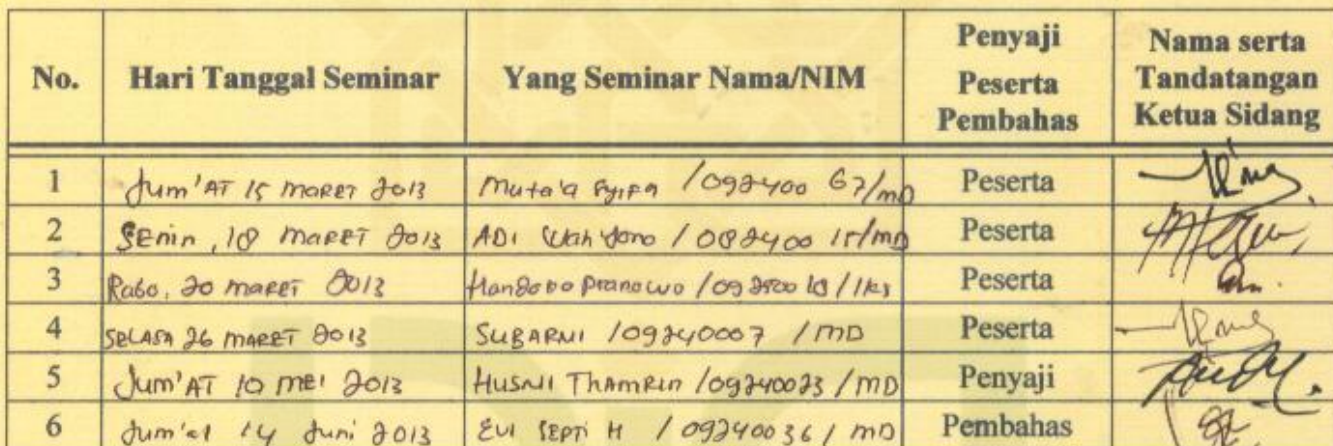 No. Hari Tanggal Seminar Yang Seminar Nama/NIM Penyaji Peserta Pembahas Nama serta Tandatangan Ketua Sidang
1 Jum'AT 15 MARET 2013 Muta'a Syifa /092400 67/MD Peserta
2 SEnin, 18 MARET 2013 ADI Wahyono / 082400 15/MD Peserta
3 Rabo, 20 MARET 2013 Handoko Pranowo / Peserta
4 SELASA 26 MARET 2013 SUBARNI /09240007 / MD Peserta
5 Jum'AT 10 MEI 2013 HUSNI THAMRIN /09240023 / MD Penyaji
6 Jum'at 14 Juni 2013 EVI SEPTI H / 09240036 / MD Pembahas